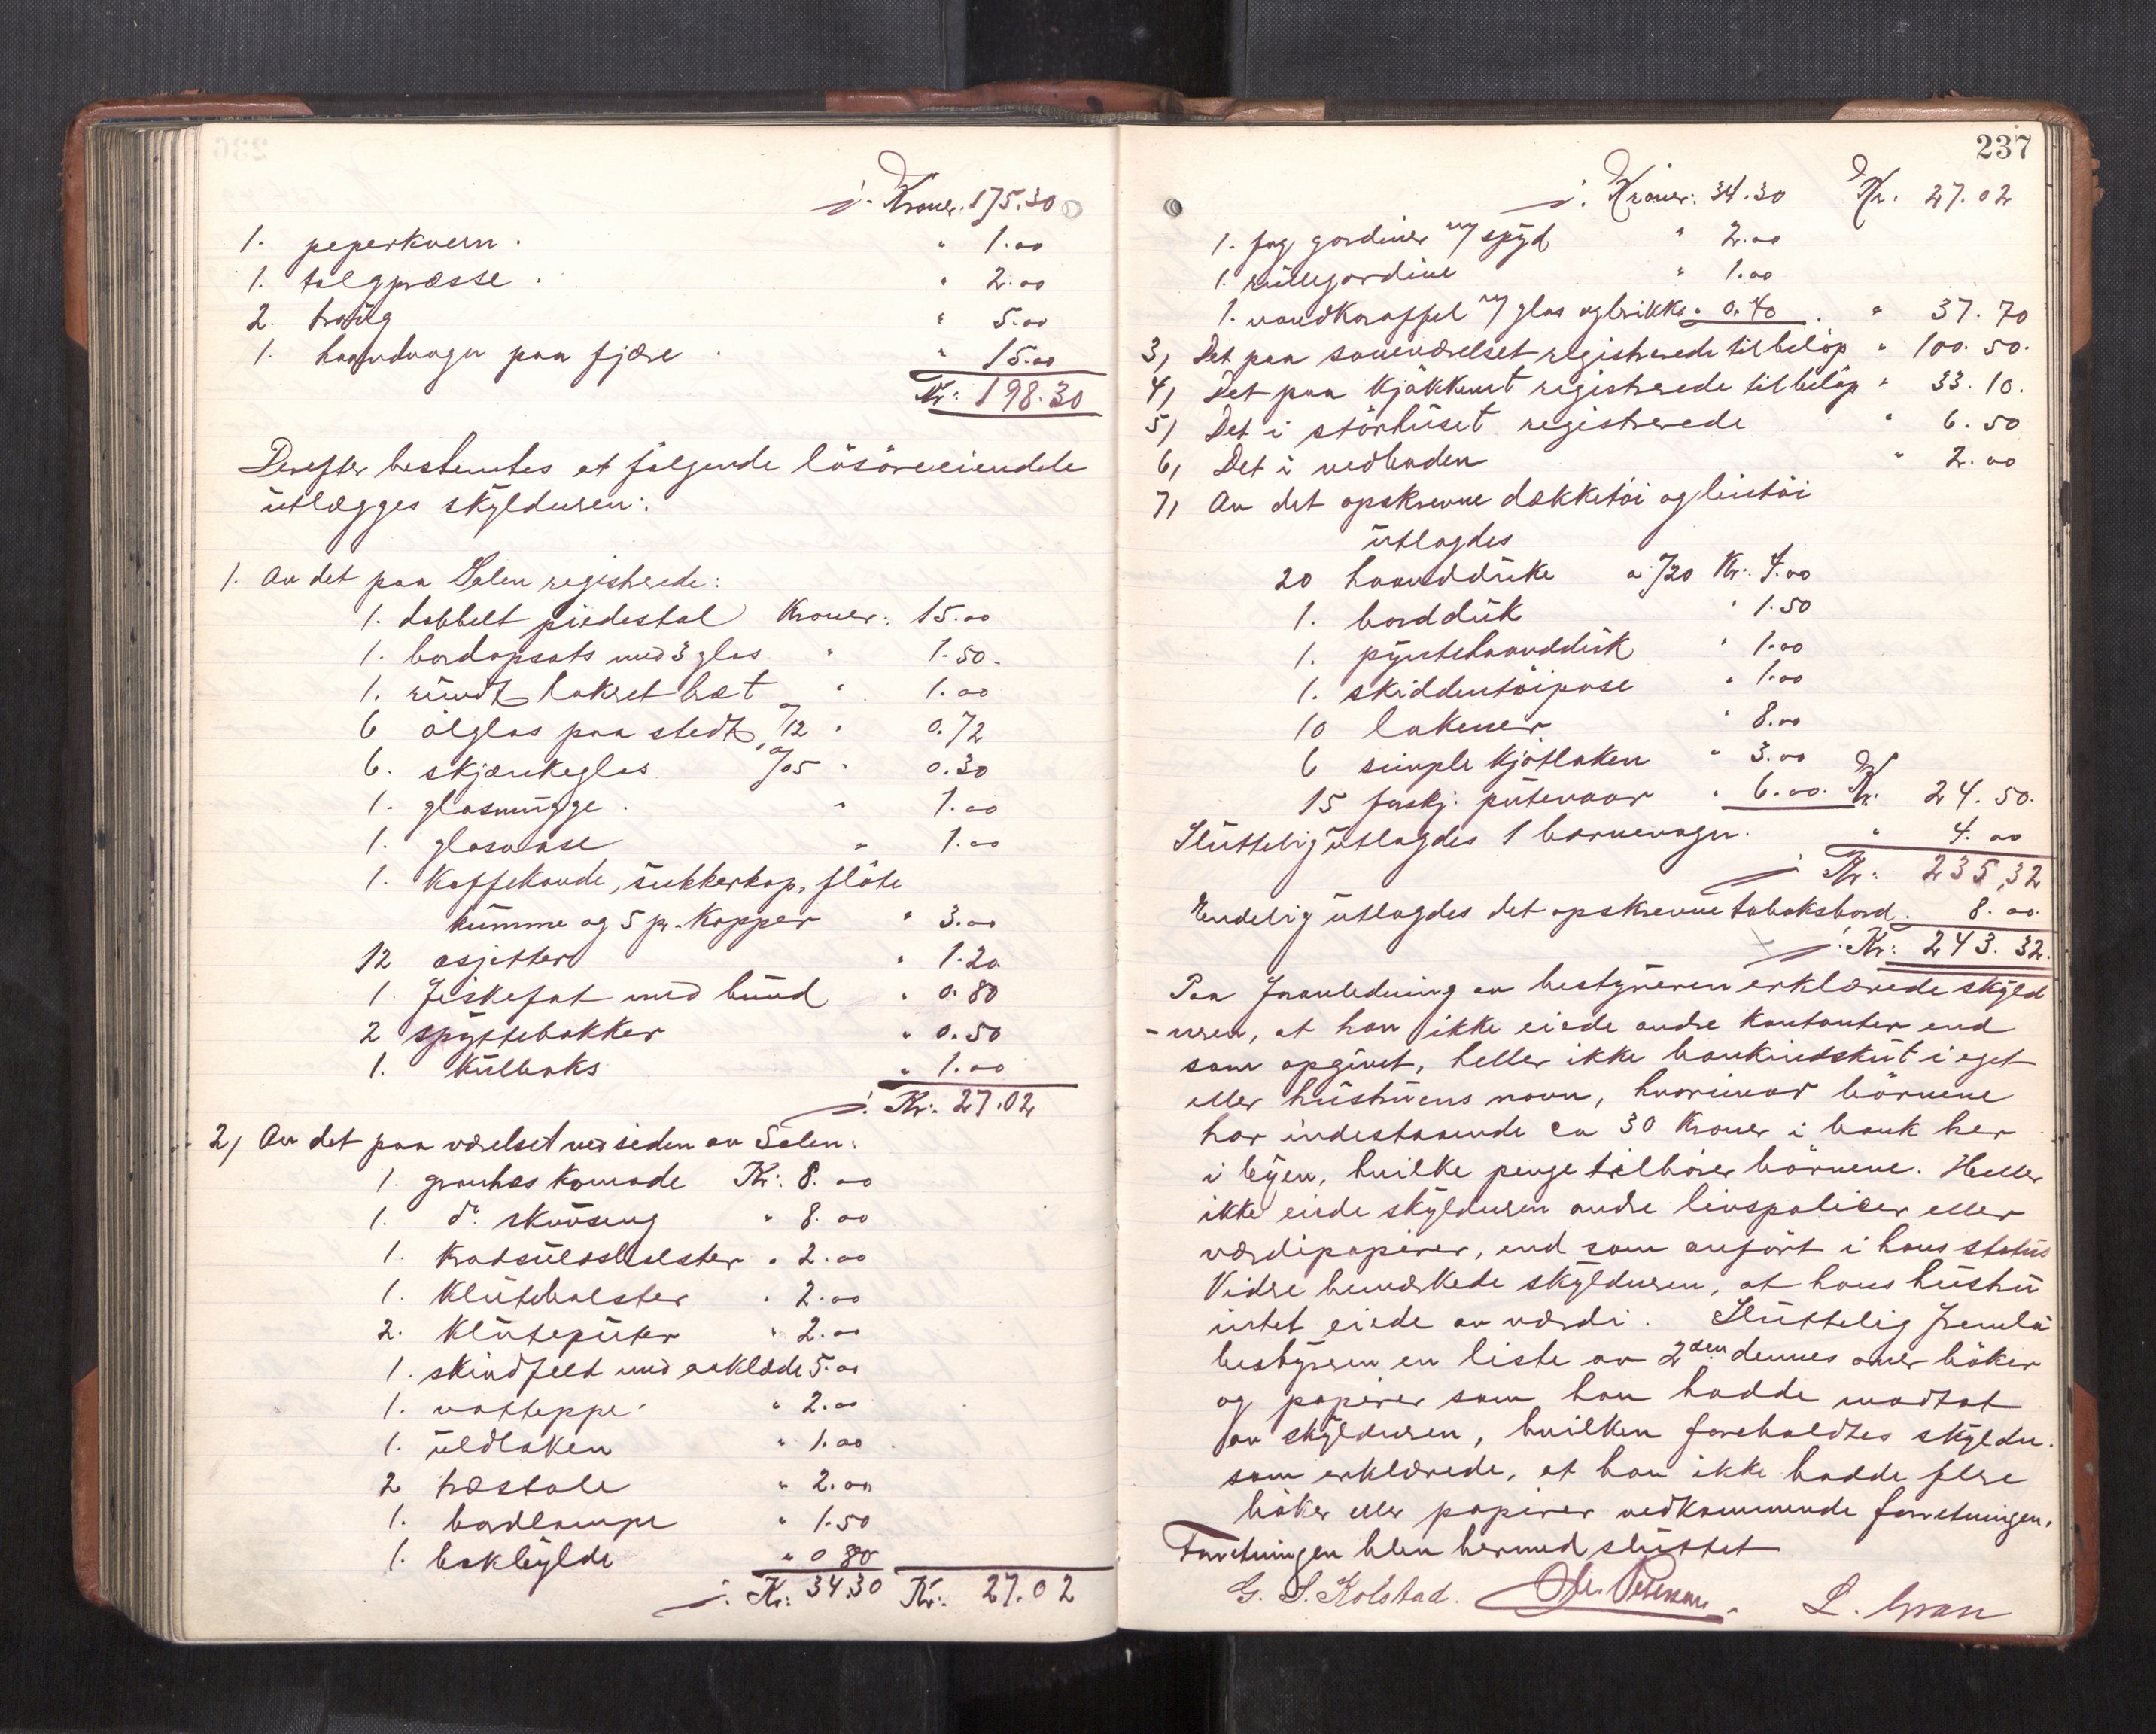 ÷ Kroner. 175.30
1. peperkvern . " 1.00
1. talgpræsse . " 2.00
2. traüg " 5.00
1. haandvogn paa fjære . " 15.00
Kr: 198.30
Derefter bestemtes at følgende lösöreeiendele
ütlægges skyldneren:
1. Av det paa Salen registrerede:
1. dobbelt piedestal Kroner: 15.00
1. bordopsats med 3 glas " 1.50.
1.ründt lakret bræt " 1.00
6 ölglas paa stedt, /12 " 0.72
6. skjænkeglas /05 " 0.30
1. glasmügge . " 1.00
1. glasvase " 1.00
1. Kaffekande, sükkerkop, flöte
kümme og 5 pr. Kopper " 3.00
12 asjetter " 1.20
1. Fiskefat med bünd " 0.80
2 spyttebakker " 0.50
1. Külboks " 1.00
÷ Kr: 27.02
2) Av det paa værelset ved siden av Salen:
1. granhes komode Kr: 8.00
1. do skuvseng " 8.00
1. Kratsüldsbolster " 2.00
1. Klütebolster " 2.00
2. Klütepüter " 2.00
1. skindfeld med aaklæde 5.00
1. vatteppe " 2.00
1. üldlaken " 1.00
2 træstole " 2.00
1. bordlampe " 1.50
1. bokhylde " 0.80
÷ Kr: 34.30 Kr: 27.02
237
÷ Kroner: 34.30 Kr. 27.02
1. fag gardiner m/ spyd " 2.00
1. rüllegardine " 1.00
1. vandkaraffel m/ glas og brikke " 0.40 . " 37.70
3) Det paa soveværelset registrerede til beløp " 100.50.
4) Det paa Kjøkkenet registrerede til beløp " 33.10.
5) Det i störhüset registrerede " 6.50
6) Det i vedboden " 2.00
7) Av det opskrevne dækketöi og lintöi
ütlagdes
20 haanddüke a /20 Kr: 4.00
1. borddük " 1.50
1. pyntehaanddük " 1.00
1. skiddentöipose " 1.00
10 lakener " 8.00
6 simple Kjøtlaken " 3.00
15 forskj: pütevaar " 6.00. Kr. 24.50.
Slüttelig ütlagdes 1 barnevogn. " 4.00
÷ Kr: 235,32
Endelig ütlagdes det opskrevne taboksbord. 8.00.
÷ Kr: 243.32.
Paa foranledning av bestyreren erklærede skyld
-neren, at han ikke eiede andre Kontanter end
som opgivet, heller ikke bankindsküt i eget
eller hüstrüens navn, hvorimot börnene
har indestaaende ca 30 Kroner i bank her
i byen, hvilke penge tilhörer börnene. Heller
ikke eiede skyldneren andre livspoliser eller
værdipapirer, end som anfört i hans status
Vidre bemærkede skyldneren, at hans hüstrü
intet eiede av værdi. Slüttelig fremla
bestyreren en liste av 2den dennes over böker
og papirer som han hadde modtat
av skyldneren, hvilken foreholdtes skyldn.
som erklærede, at han ikke hadde flere
böker eller papirer vedkommende forretningen.
Forretningen blev hermed slüttet
G. S. Kolstad. L. Gran